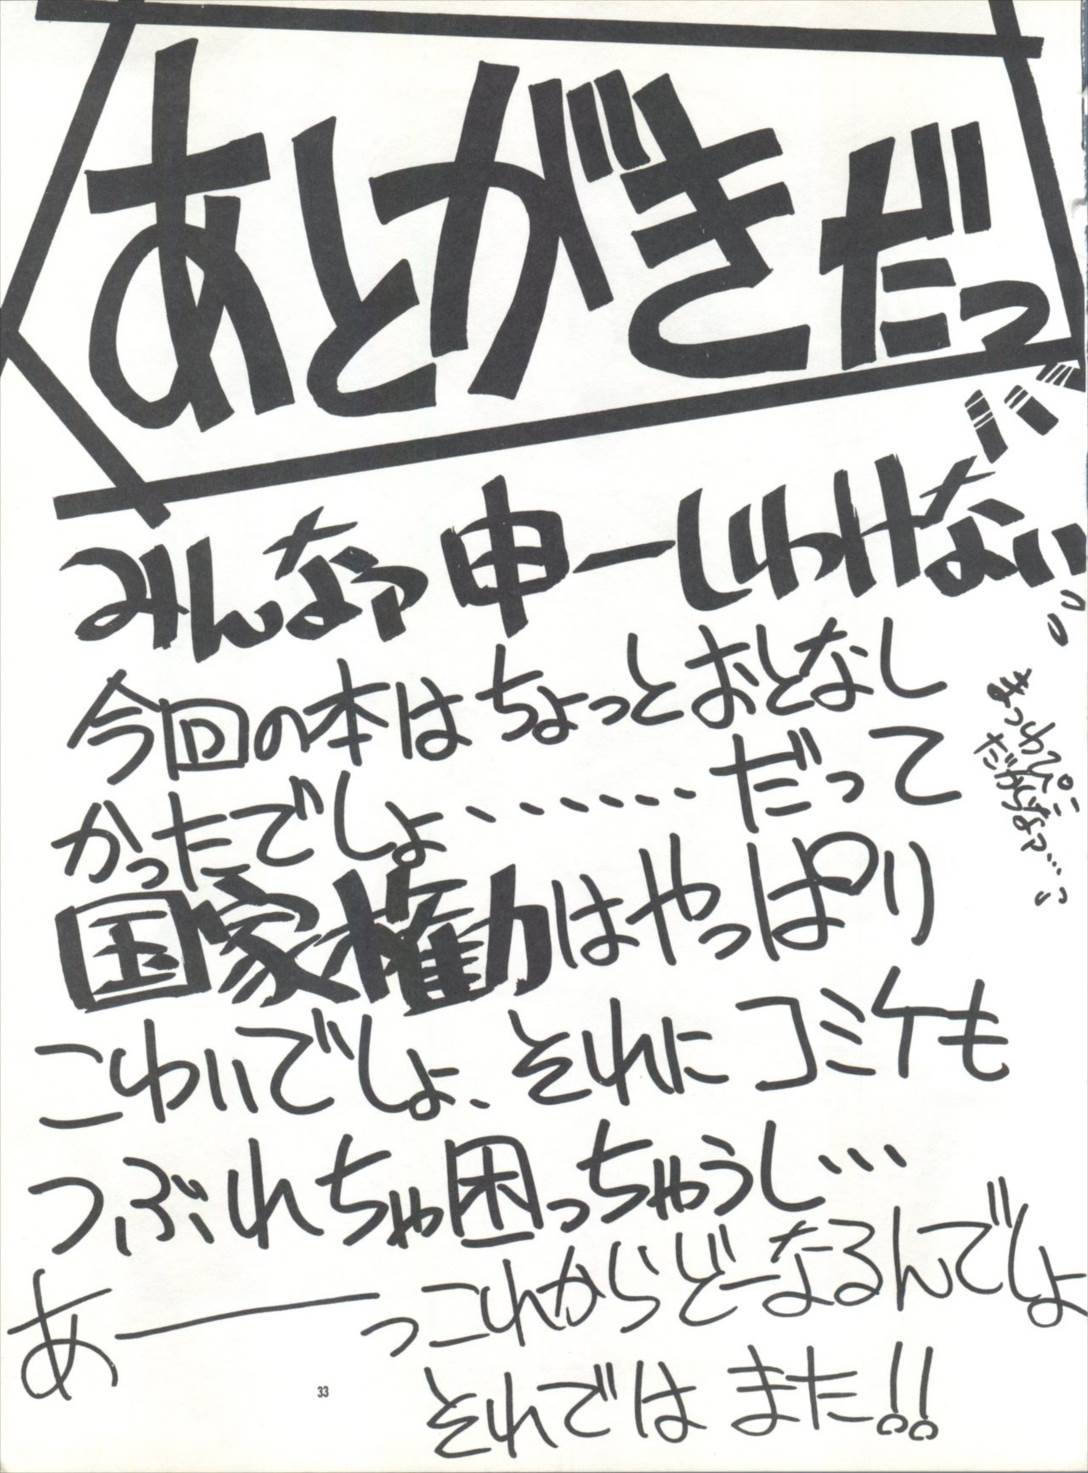 あとがきだっ
みんなァ 申ーしわけない
今回の本はちょっとおとなし
かったでしょ、、、、、、、だって
国家権力はやっぱり
こわいでしょ、それにコミケも
つぶれちゃ困っちゃうし…
あーーっこれからどーなるんでしょ
それではまた!!
だからなァ…
33